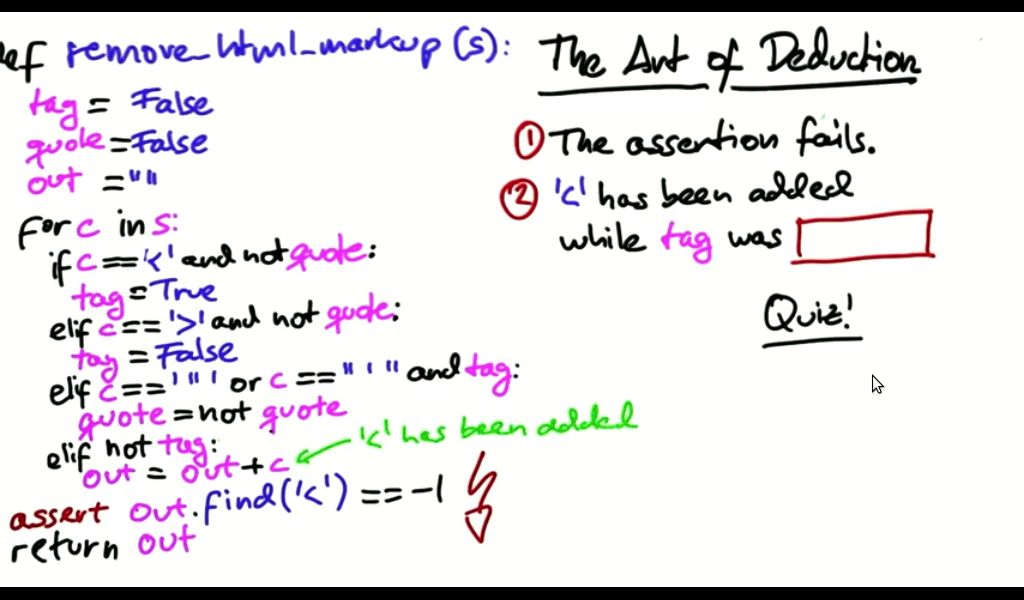 ef remove_html_markup (s):
tag = False
quote = False
out = ""
for c in s:
if c == '<' and not quote:
tag = True
elif c == '>' and not quote:
tag = False
elif c == '"' or c == "'" and tag:
quote = not quote
elif not tag:
out = out + c
'<' has been added
assert out.find('<') == -1
return out
The Art of Deduction
① The assertion fails.
② '<' has been added
while tag was
Quiz!